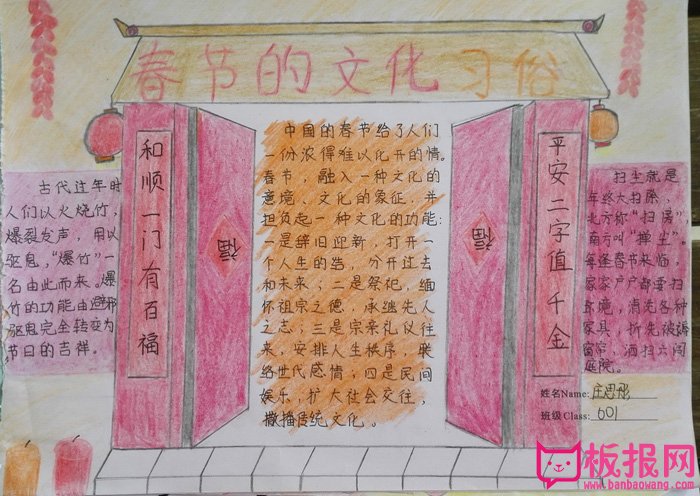 春节的文化习俗
和顺一门有百福
平安二字值千金
福
福
古代过年时
人们以火烧竹，
爆裂发声，用以
驱鬼，“爆竹”一
名由此而来。爆
竹的功能由避邪
驱鬼完全转变为
节日的吉祥。
中国的春节给了人们
一份浓得难以化开的情。
春节，融入一种文化的
意境、文化的象征，并
担负起一种文化的功能：
一是辞旧迎新，打开一
个人生的结，分开过去
和未来；二是祭祀，缅
怀祖宗之德，承继先人
之志；三是宗亲礼仪往
来，安排人生秩序，联
络世代感情；四是民间
娱乐，扩大社会交往，
撒播传统文化。
扫尘就是
年终大扫除，
北方称“扫房”，
南方叫“掸尘”。
每逢春节来临，
家家户户都要扫
环境，清洗各种
家具，拆洗被褥
窗帘，洒扫六闾
庭院。
姓名Name: 庄思彤
班级Class: 601
板报网
www.banbaowang.com